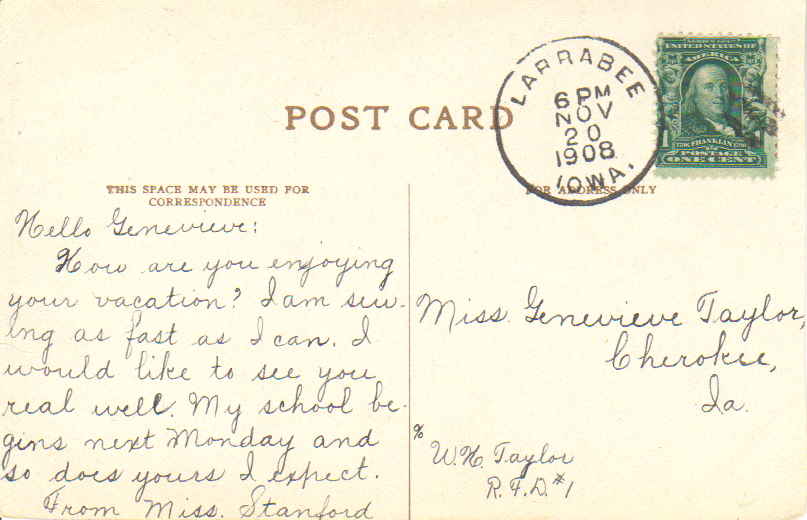 POST CARD
LARRABEE
6 PM
NOV
20
1908
IOWA.
UNITED STATES OF
AMERICA
FRANKLIN
POSTAGE
ONE CENT
THIS SPACE MAY BE USED FOR
CORRESPONDENCE
FOR ADDRESS ONLY
Hello Genevieve:
How are you enjoying
your vacation? I am sew-
ing as fast as I can. I
would like to see you
real well. My school be-
gins next Monday and
so does yours I expect.
From Miss. Stanford
Miss. Genevieve Taylor,
Cherokee,
Ia.
%
W. H. Taylor
R.F.D. #1